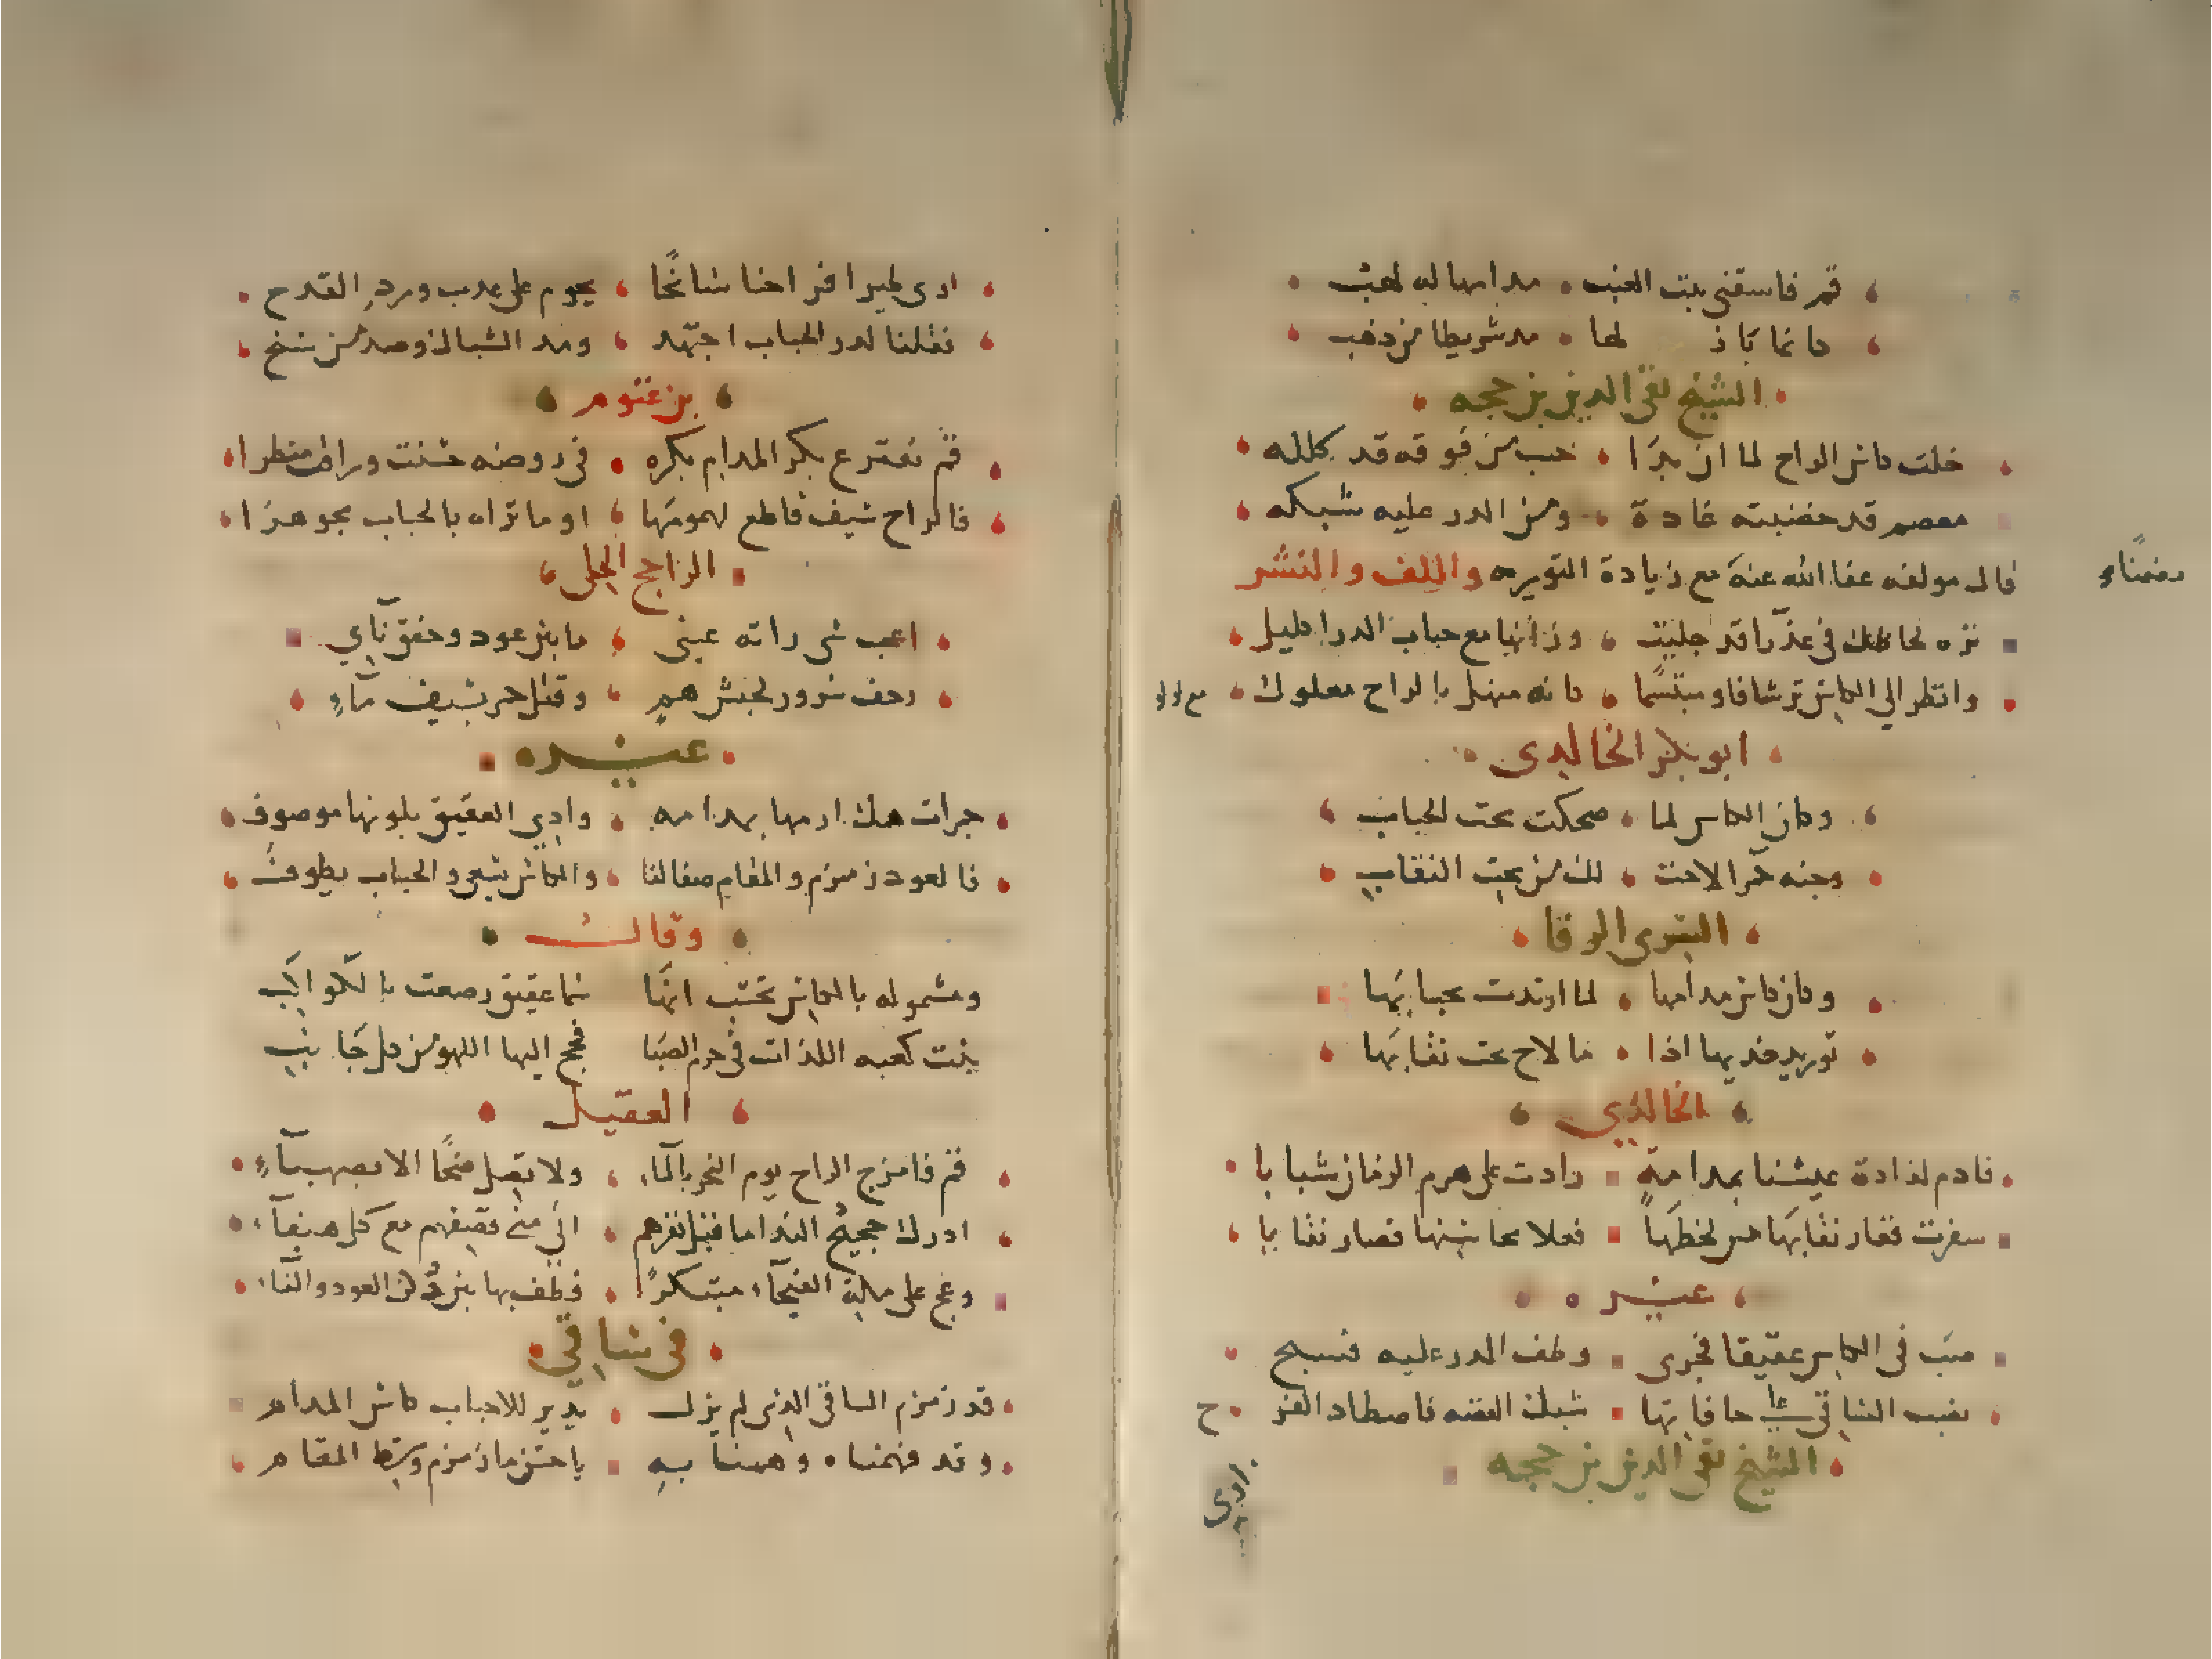 قم فاسقنى بنت العنب مدامها له لهب
كانما باذ لها مد شريطا من ذهب
الشيخ تقى الدين بن حجه
خلت كاس الراح لما ان بدا حبب من فوقه قد كلله
معصم قد خضبته غادة ومن الدر عليه شبكه
قال مولفه عفا الله عنه مع زيادة التوريه واللف والنشر
مضمناء
نزه لحاظك فى عذرا قد جليت وزانها مع حباب الدر اكليل
وانظر الي الكاس ترشافا ومبتسما كانه منهل بالراح معلول
ابو بكر الخالدى
وكان الكاس لما ضحكت تحت الحباب
وجنه حمرا لاحت لك من تحت النقاب
السرى الرفا
وكان كاس مدامها لما ارتدت بحبابها
توريد خديها اذا ما لاح تحت نقابها
الخالدي
فادم لذاذة عيشنا بمدامة زادت على هرم الزمان شبابا
سفرت فغار نقابها من لحظها فعلا محاسنها فصار نقابا
غيره
صب فى الكاس عقيقا فجرى وطف الدر عليه فسبح
نصب الساقى على حافاتها شبك الفضه فاصطاد الفرح
الشيخ تقى الدين بن حجه
ارى
ارى طير افراحنا سانحا يحوم على عذب ورد القدح
فقلنا لدر الحباب اجتهد ومد الشباك وصد من سنح
بن غنوم
قم نفترع بكر المدام بكره فى روضه حسنت وراق منظرا
فالراح سيف قاطع لهمومها او ما تراه بالحباب مجوهرا
الراجح الحلى
اعجب شى راته عينى ما بين عود وخفق ناي
زحف سرور لجيش هم وقتل حر بسيف ماء
غيره
جمرات همك ارمها بمدامه وادي العقيق بلونها موصوف
فالعود زمزم والمقام صفا لنا والكاس يسعى والحباب يطوف
وقال
ومشموله بالكاس تحسب انها سما عقيق رصعت بالكواكب
بنت كعبه اللذات فى حرم الصبا فحج اليها اللهو من كل جانب
العقيلى
قم فامزج الراح يوم النحر بالماء ولا تصل ضحا الا بصهباء
ادرك حجيج الندامى قبل نفرهم الي منى قصفهم مع كل هيفاء
وعج على مكة الفيحاء مبتكرا وطف بها بين ركن العود والناء
فى ساقي
قد زمزم الساقى الذى لم يزل يدير للاحباب كاس المدام
وقد فهمنا وهمنا به يا حسن ما زمزم وسط المقام